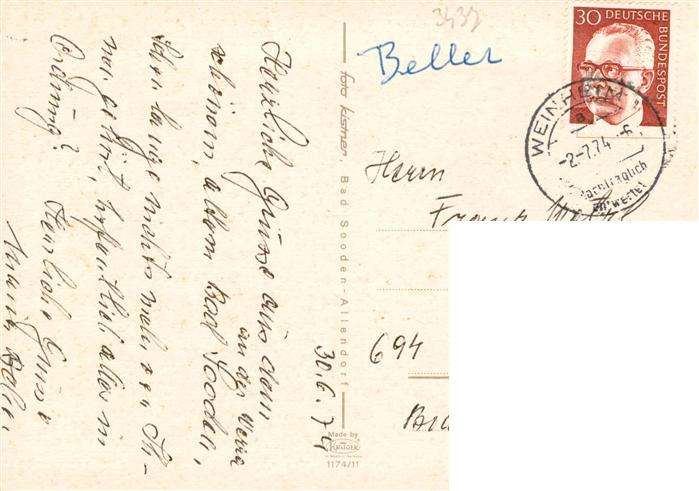 3437
Beller
30 DEUTSCHE
BUNDESPOST
WEINHEIM
a
-2.-7.74 -6
nachträglich
entwertet
Herrn
Franz
694
foto kistner Bad Sooden-Allendorf
Made by
KRÜGER
1174/11
30.6.74
Herzliche Grüsse aus dem
schönen, alten Bad Sooden,
an der Werra
Schon lange nichts mehr von Ih-
nen gehört, hoffentlich alles in
Ordnung?
Herzliche Grüsse
Beller.